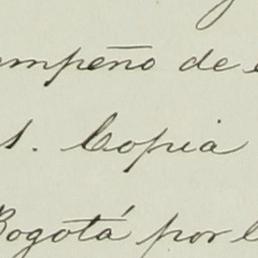 mpeño de
s. Copia
Bogotá por